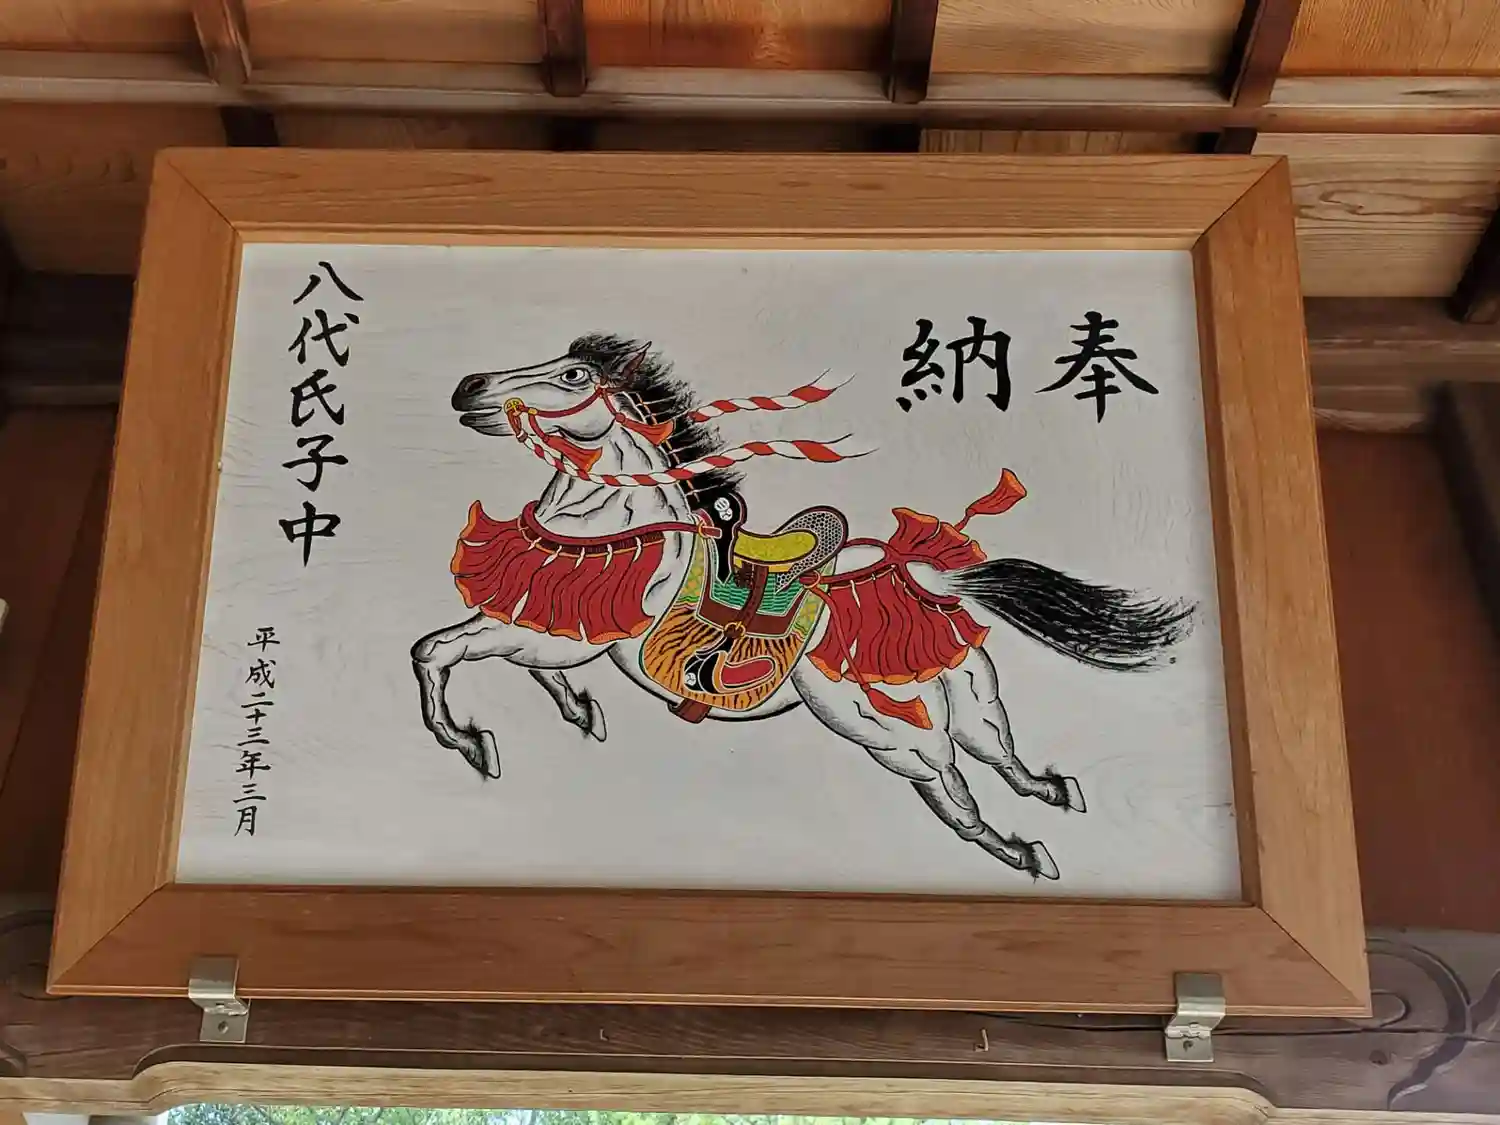 奉納
八代氏子中
平成二十三年三月